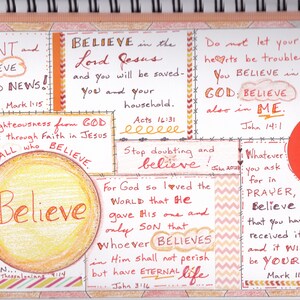 ENT and
BELIEVE
NEWS!
Mark 1:15
BELIEVE in the
Lord Jesus
and you will be saved-
You and your
household.
Acts 16:31
Do not let your
hearts be troubled
You BELIEVE in
GOD, BELIEVE
also in ME.
John 14:1
ighteousness from GOD
through Faith in JESUS
ALL who BELIEVE
Stop doubting and
believe!
John
Believe
Thessalonians 4:14
For God so loved the
WORLD that HE
GAVE His one and
only SON that
whoever BELIEVES
in Him shall not perish
but have ETERNAL life
John 3:16
Whatever
you ask
for in
PRAYER,
Believe
that you ha
received it
and it will
be YOUR
Mark 11: